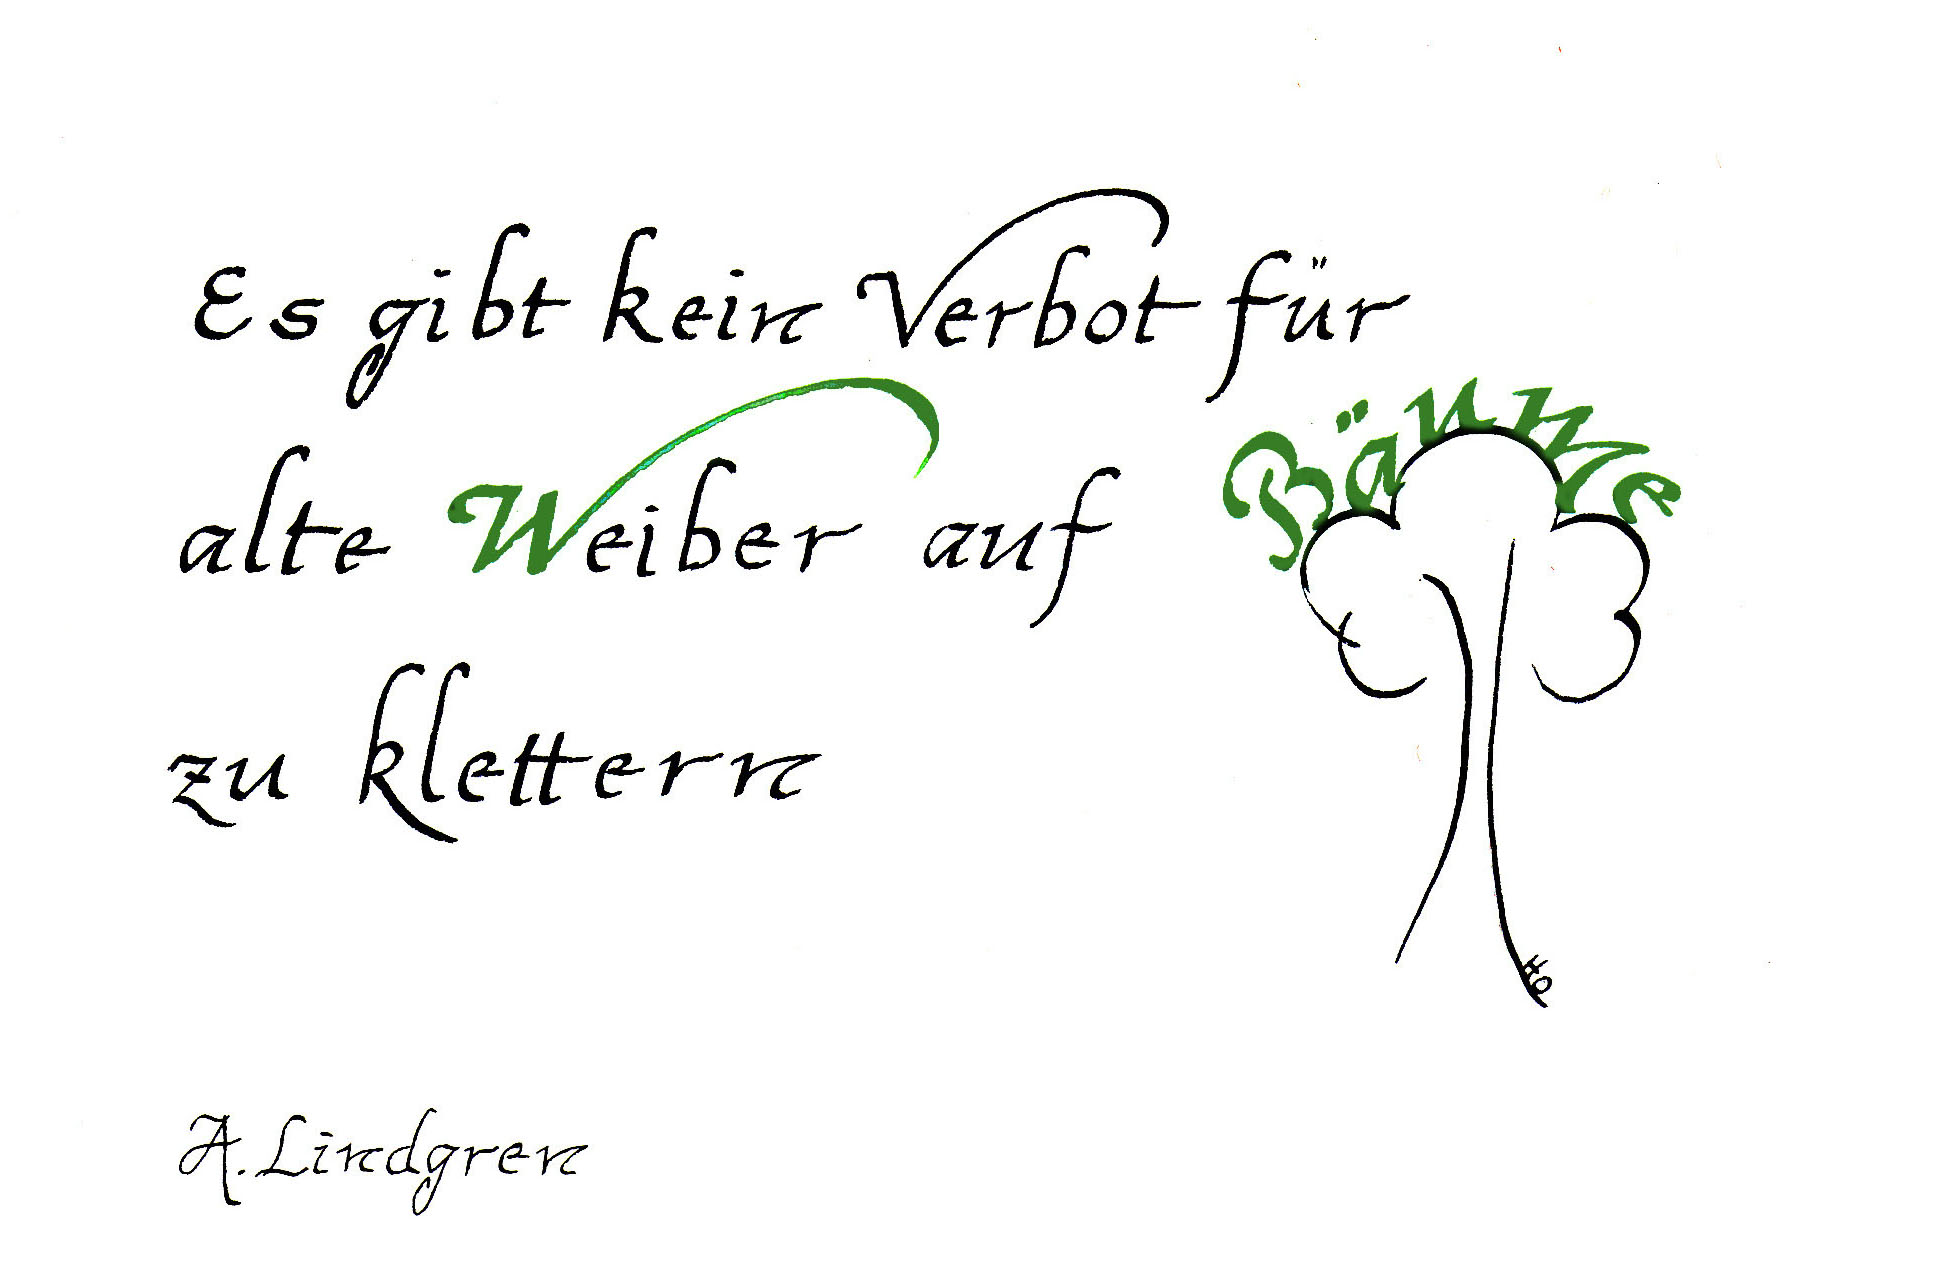 Es gibt kein Verbot für
alte Weiber auf Bäume
zu klettern
A. Lindgren